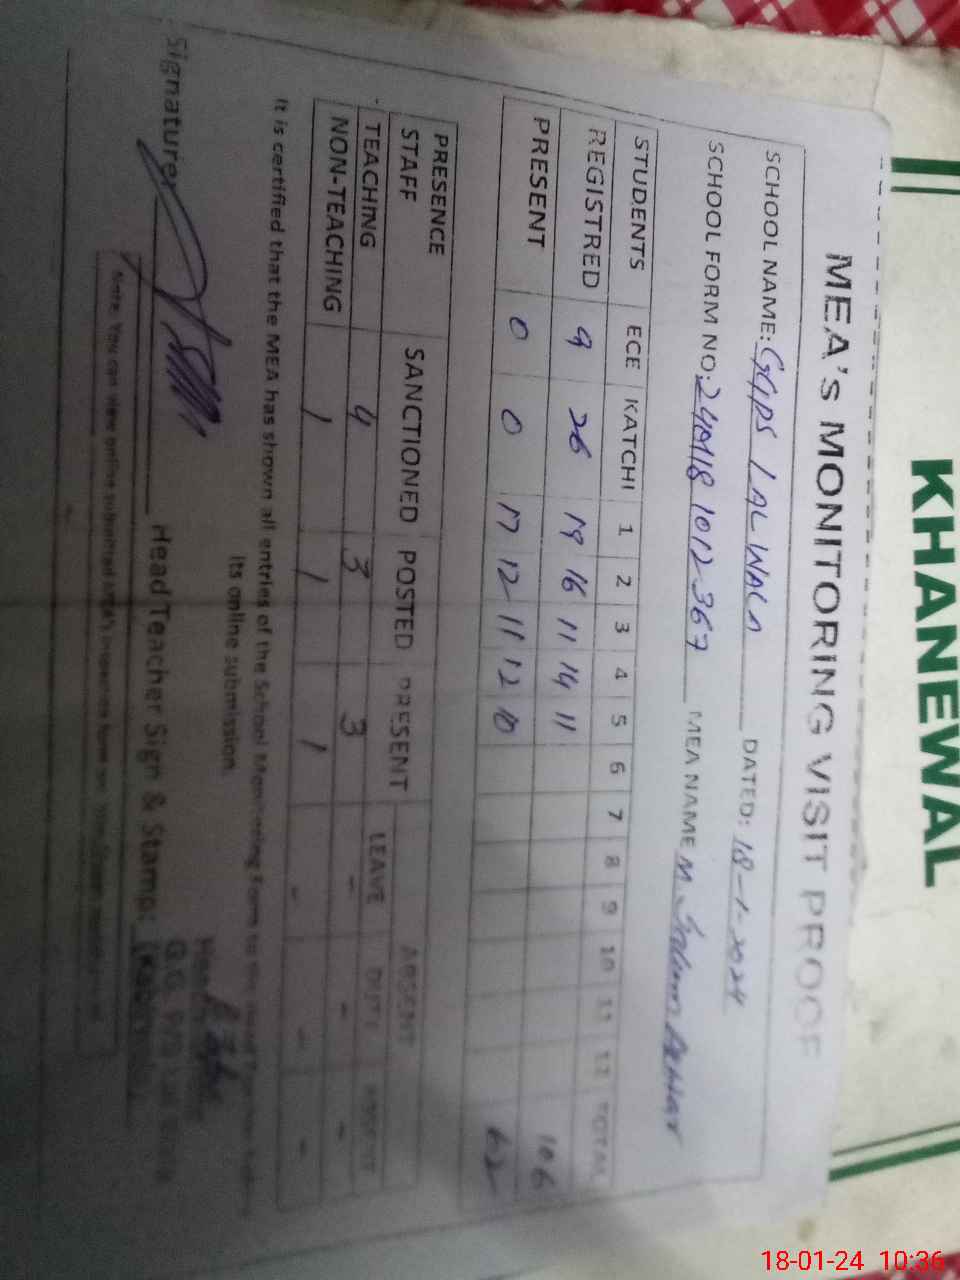 KHANEWAL
MEA's MONITORING VISIT PROOF
SCHOOL NAME: GGPS LALWALA DATED: 18-1-2024
SCHOOL FORM NO: MEA NAME M
STUDENTS ECE KATCHI 1 2 3 4 5 6 7 8 9 10 11 12 TOTAL
REGISTRED 9 26 19 16 11 14 11 106
PRESENT 0 0 17 12 11 12 10 62
PRESENCE STAFF SANCTIONED POSTED PRESENT ABSENT
LEAVE DUTY ABSENT
TEACHING 4 3 3 - - -
NON-TEACHING 1 1 1 - - -
It is certified that the MEA has shown all entries of the School Monitoring form to the
its online submission.
Signature: Head Teacher Sign & Stamp:
Note: You can view online submitted
18-01-24 10:36